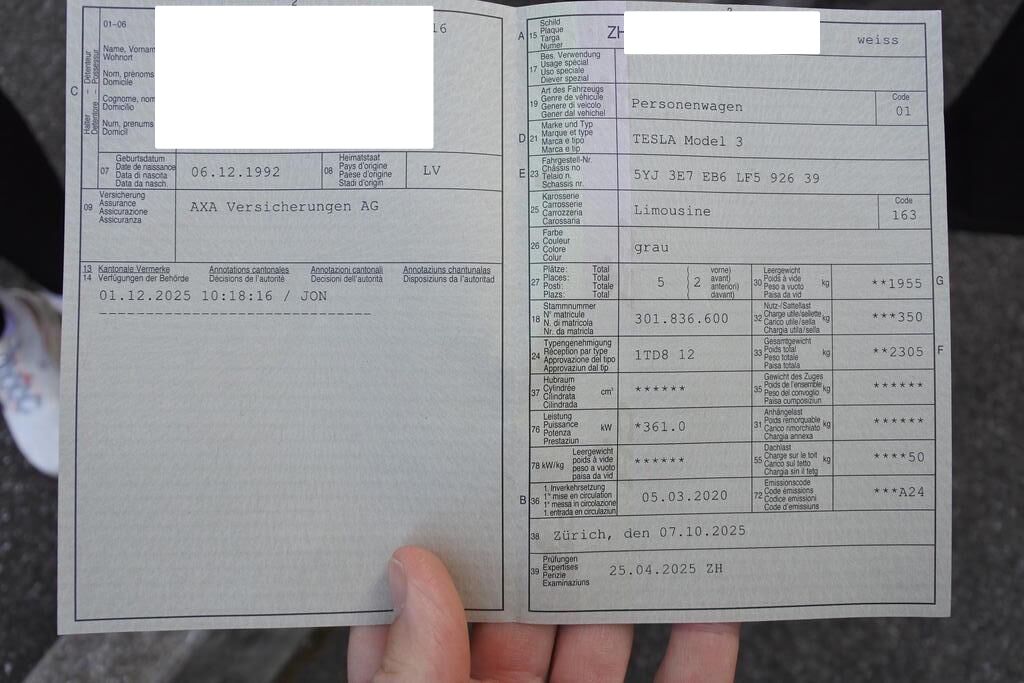 2
01-06
16
C
Halter – Détenteur
Detentore – Possessur
Name, Vornam
Wohnort
Nom, prénoms
Domicile
Cognome, nom
Domicilio
Num, prenums
Domicil
07
Geburtsdatum
Date de naissance
Data di nascita
Data da nasch.
06.12.1992
08
Heimatstaat
Pays d'origine
Paese d'origine
Stadi d'origin
LV
09
Versicherung
Assurance
Assicurazione
Assicuranza
AXA Versicherungen AG
13 Kantonale Vermerke Annotations cantonales Annotazioni cantonali Annotaziuns chantunalas
14 Verfügungen der Behörde Décisions de l'autorité Decisioni dell'autorità Disposiziuns da l'autoritad
01.12.2025 10:18:16 / JON
A 15
Schild
Plaque
Targa
Numer
ZH
weiss
17
Bes. Verwendung
Usage spécial
Uso speciale
Diever spezial
19
Art des Fahrzeugs
Genre de véhicule
Genere di veicolo
Gener dal vehichel
Personenwagen
Code
01
D 21
Marke und Typ
Marque et type
Marca e tipo
Marca e tip
TESLA Model 3
E 23
Fahrgestell-Nr.
Châssis no
Telaio n.
Schassis nr.
5YJ 3E7 EB6 LF5 926 39
25
Karosserie
Carrosserie
Carrozzeria
Carossaria
Limousine
Code
163
26
Farbe
Couleur
Colore
Colur
grau
27
Plätze: Total
Places: Total
Posti: Totale
Plazs: Total
5 ( 2
vorne)
avant)
anteriori)
davant)
30
Leergewicht
Poids à vide
Peso a vuoto
Paisa da vid
kg
**1955
G
18
Stammnummer
N° matricule
N. di matricola
Nr. da matricla
301.836.600
32
Nutz-/Sattellast
Charge utile/sellette
Carico utile/sella
Chargia utila/sella
kg
***350
24
Typengenehmigung
Réception par type
Approvazione del tipo
Approvaziun dal tip
1TD8 12
33
Gesamtgewicht
Poids total
Peso totale
Paisa totala
kg
**2305
F
37
Hubraum
Cylindrée
Cilindrata
Cilindrada
cm³
******
35
Gewicht des Zuges
Poids de l'ensemble
Peso del convoglio
Paisa cumposiziun
kg
******
76
Leistung
Puissance
Potenza
Prestaziun
kW
*361.0
31
Anhängelast
Poids remorquable
Carico rimorchiato
Chargia annexa
kg
******
78 kW/kg
Leergewicht
poids à vide
peso a vuoto
paisa da vid
******
55
Dachlast
Charge sur le toit
Carico sul tetto
Chargia sin il tetg
kg
****50
B 36
1. Inverkehrsetzung
1re mise en circulation
1a messa in circolazione
1. entrada en circulaziun
05.03.2020
72
Emissionscode
Code émissions
Codice emissioni
Code d'emissiuns
***A24
38
Zürich, den 07.10.2025
39
Prüfungen
Expertises
Perizie
Examinaziuns
25.04.2025 ZH